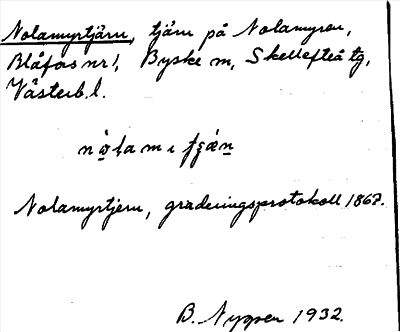 Nolamyrtjärn, tjärn på Nolamyren,
Blåfors nr 1, Byske m, Skellefteå tg,
Västerb. l.
Nolamyrtjern, graderingsprotokoll 1867.
B. Nygren 1932.